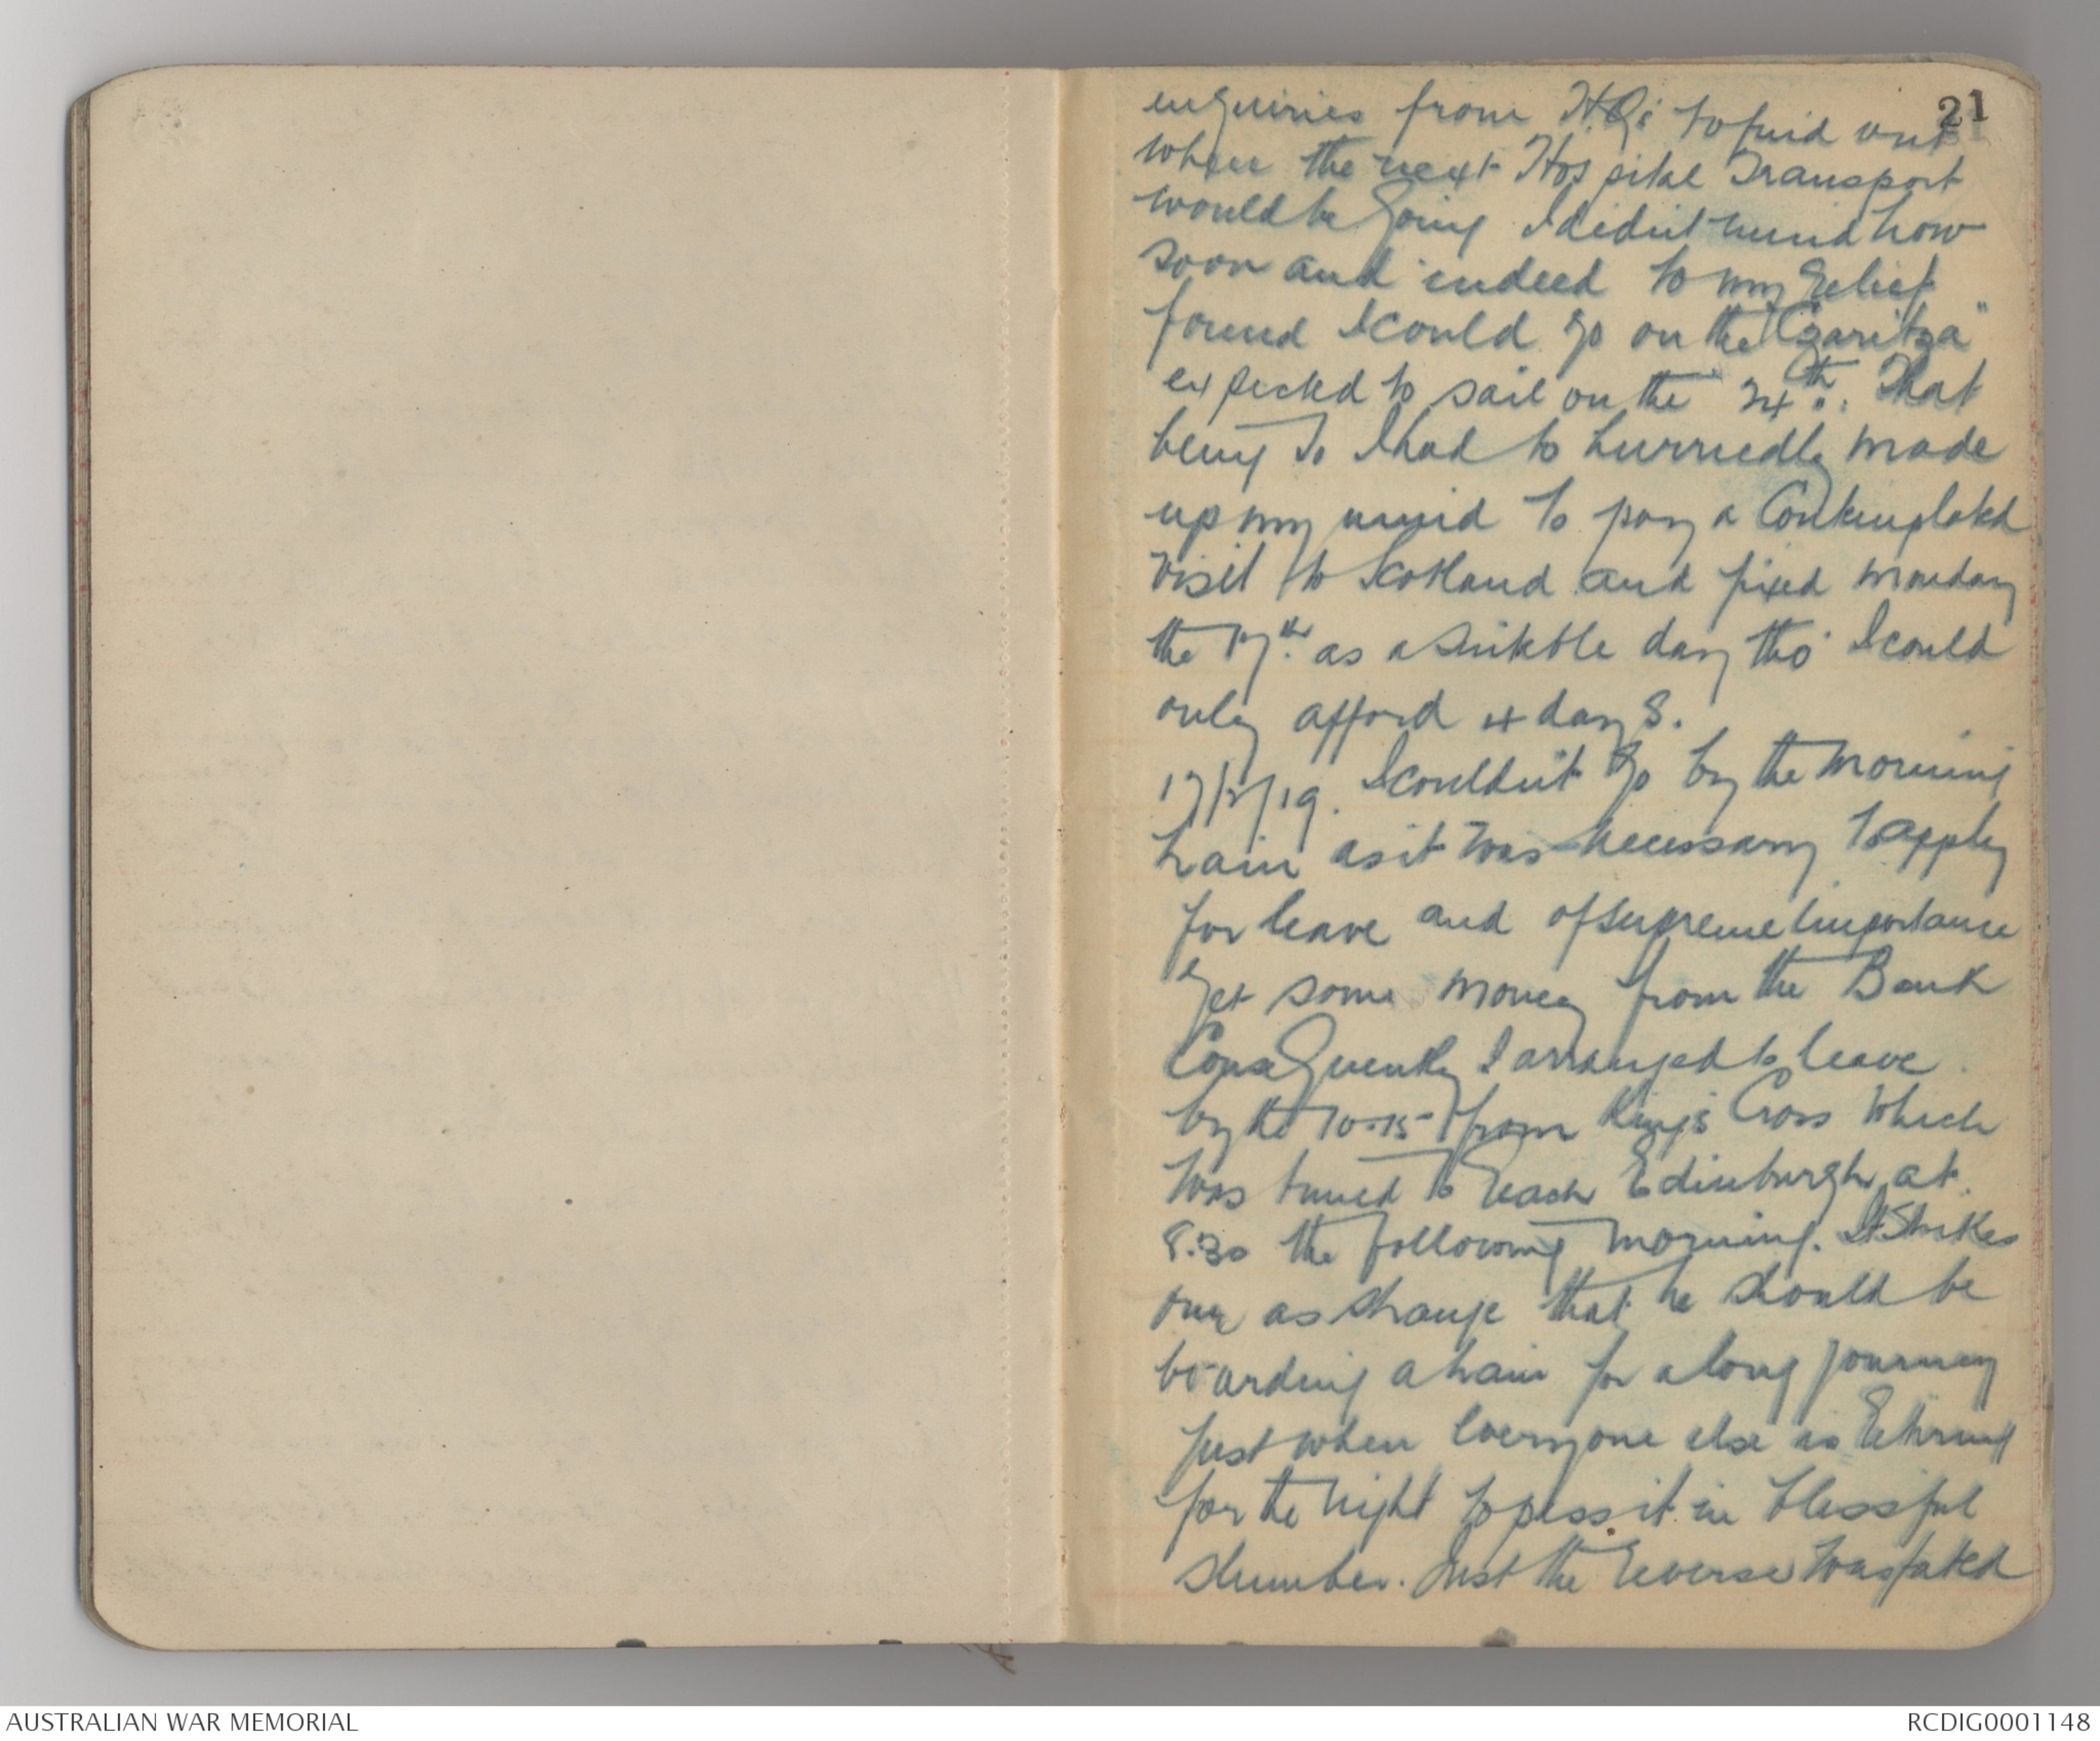 21
enquiries from H.Q's to find out
when the next Hospital Transport
would be going I didn't mind how
soon and indeed to my relief
found I could go on the "Czaritza"
expected to sail on the 24th. That
being so I had to hurriedly made
up my mind to pay a contemplated
visit to Scotland and fixed Monday
the 17th as a suitable day tho' I could
only afford 4 days.
17/2/19. I couldn't go by the morning
train as it was necessary to apply
for leave and of supreme importance
get some money from the Bank
Consequently I arranged to leave
by the 10-15 from King's Cross which
was timed to reach Edinburgh at
8.30 the following morning. It strikes
one as strange that he should be
boarding a train for a long journey
just when everyone else is retiring
for the night to pass it in blissful
slumber. Just the reverse was fated
AUSTRALIAN WAR MEMORIAL
RCDIG0001148